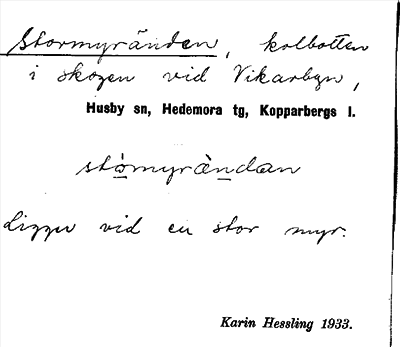 Stormyränden, kolbotten
i skogen vid Vikarbyn,
Husby sn, Hedemora tg, Kopparbergs l.
stòmyrä̀ndan
Ligger vid en stor myr.
Karin Hessling 1933.